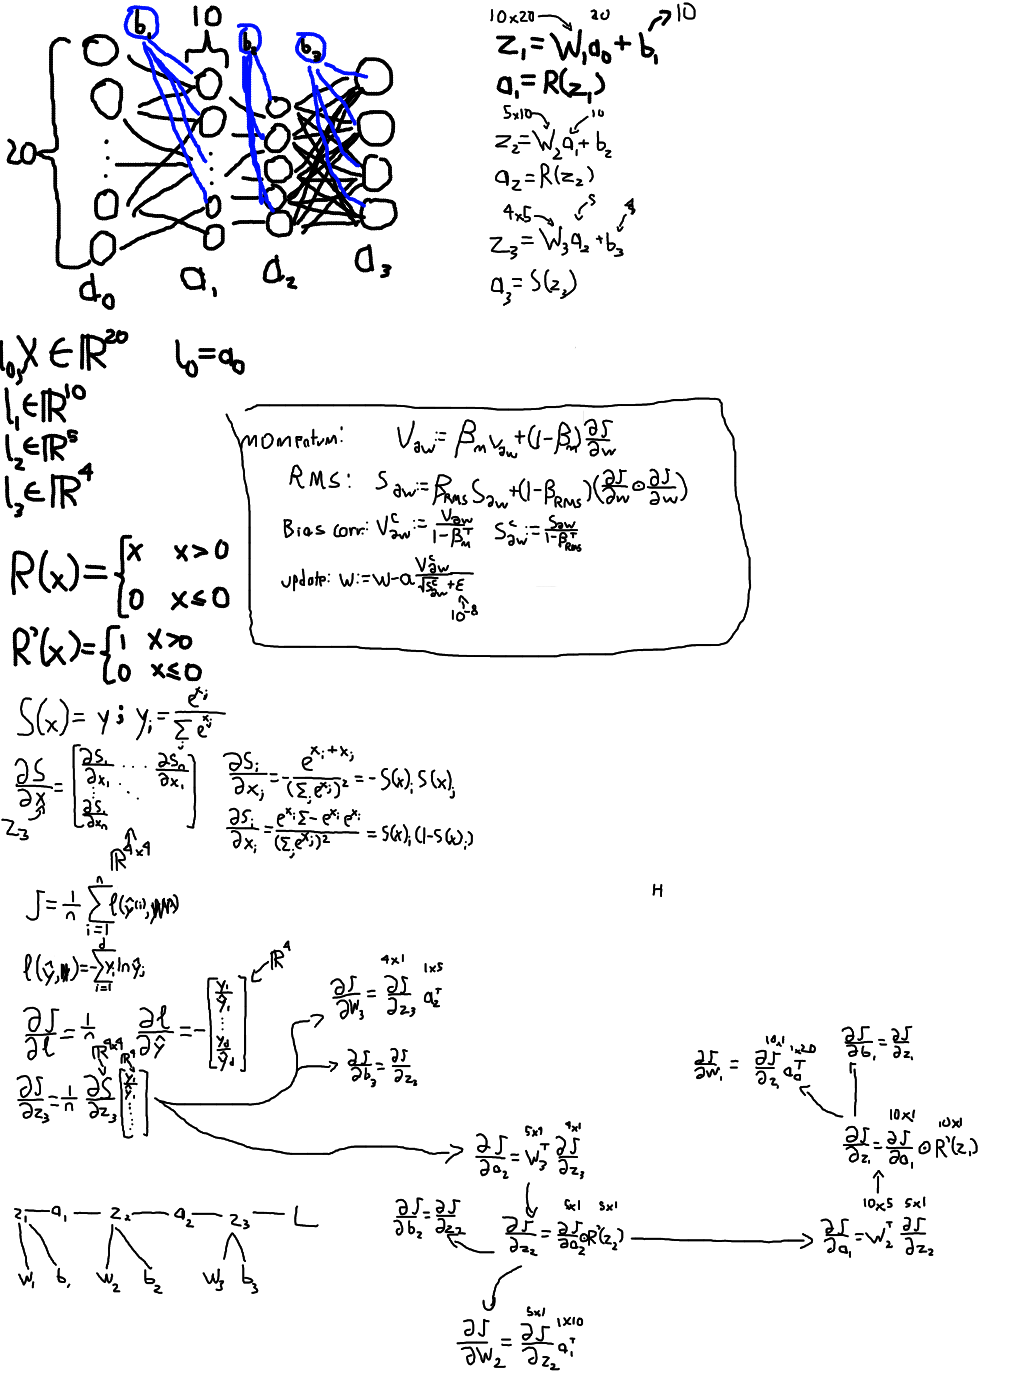 b₁ 10 b₂ b₃
20
a₀ a₁ a₂ a₃
10x20 20 10
z₁ = W₁a₀ + b₁
a₁ = R(z₁)
5x10 10
z₂ = W₂a₁ + b₂
a₂ = R(z₂)
4x5 5 4
z₃ = W₃a₂ + b₃
a₃ = S(z₃)
l₀, X ∈ ℝ²⁰ l₀ = a₀
l₁ ∈ ℝ¹⁰
l₂ ∈ ℝ⁵
l₃ ∈ ℝ⁴
momentum: V_∂w := β_m V_∂w + (1-β_m) ∂J/∂w
RMS: S_∂w := β_RMS S_∂w + (1-β_RMS)(∂J/∂w ⊙ ∂J/∂w)
Bias corr: V^c_∂w := V_∂w/(1-β_m^T) S^c_∂w := S_∂w/(1-β_RMS^T)
update: W := W - α V^c_∂w/(√S^c_∂w + ε)
10⁻⁸
R(x) = { x x>0
0 x≤0
R'(x) = { 1 x>0
0 x≤0
S(x) = y; y_i = e^{x_i}/Σ_j e^{x_j}
∂S/∂x = [∂S₁/∂x₁ ... ∂S_n/∂x₁ ... ∂S₁/∂x_n]
z₃
ℝ^{4x4}
∂S_i/∂x_j = -e^{x_i+x_j}/(Σ_j e^{x_j})² = -S(x)_i S(x)_j
∂S_i/∂x_i = (e^{x_i}Σ - e^{x_i}e^{x_i})/(Σ_j e^{x_j})² = S(x)_i(1-S(x)_i)
H
J = 1/n Σ_{i=1}^{n} ℓ(ŷ^{(i)},
ℓ(ŷ, ) = -Σ_{i=1}^{d} y_i ln ŷ_i
∂J/∂ℓ = 1/n ∂ℓ/∂ŷ = -[y₁/ŷ₁ ... y_d/ŷ_d] ℝ⁴
ℝ^{4x4} ℝ⁴
∂J/∂z₃ = 1/n ∂S/∂z₃ [y₁/ŷ₁ ...]
4x1 1x5
∂J/∂W₃ = ∂J/∂z₃ a₂ᵀ
∂J/∂b₃ = ∂J/∂z₃
5x4 4x1
∂J/∂a₂ = W₃ᵀ ∂J/∂z₃
5x1 5x1
∂J/∂z₂ = ∂J/∂a₂ ⊙ R'(z₂)
∂J/∂b₂ = ∂J/∂z₂
5x1 1x10
∂J/∂W₂ = ∂J/∂z₂ a₁ᵀ
10x5 5x1
∂J/∂a₁ = W₂ᵀ ∂J/∂z₂
10x1 10x1
∂J/∂z₁ = ∂J/∂a₁ ⊙ R'(z₁)
∂J/∂b₁ = ∂J/∂z₁
10x1 1x20
∂J/∂W₁ = ∂J/∂z₁ a₀ᵀ
z₁ — a₁ — z₂ — a₂ — z₃ — L
W₁ b₁ W₂ b₂ W₃ b₃